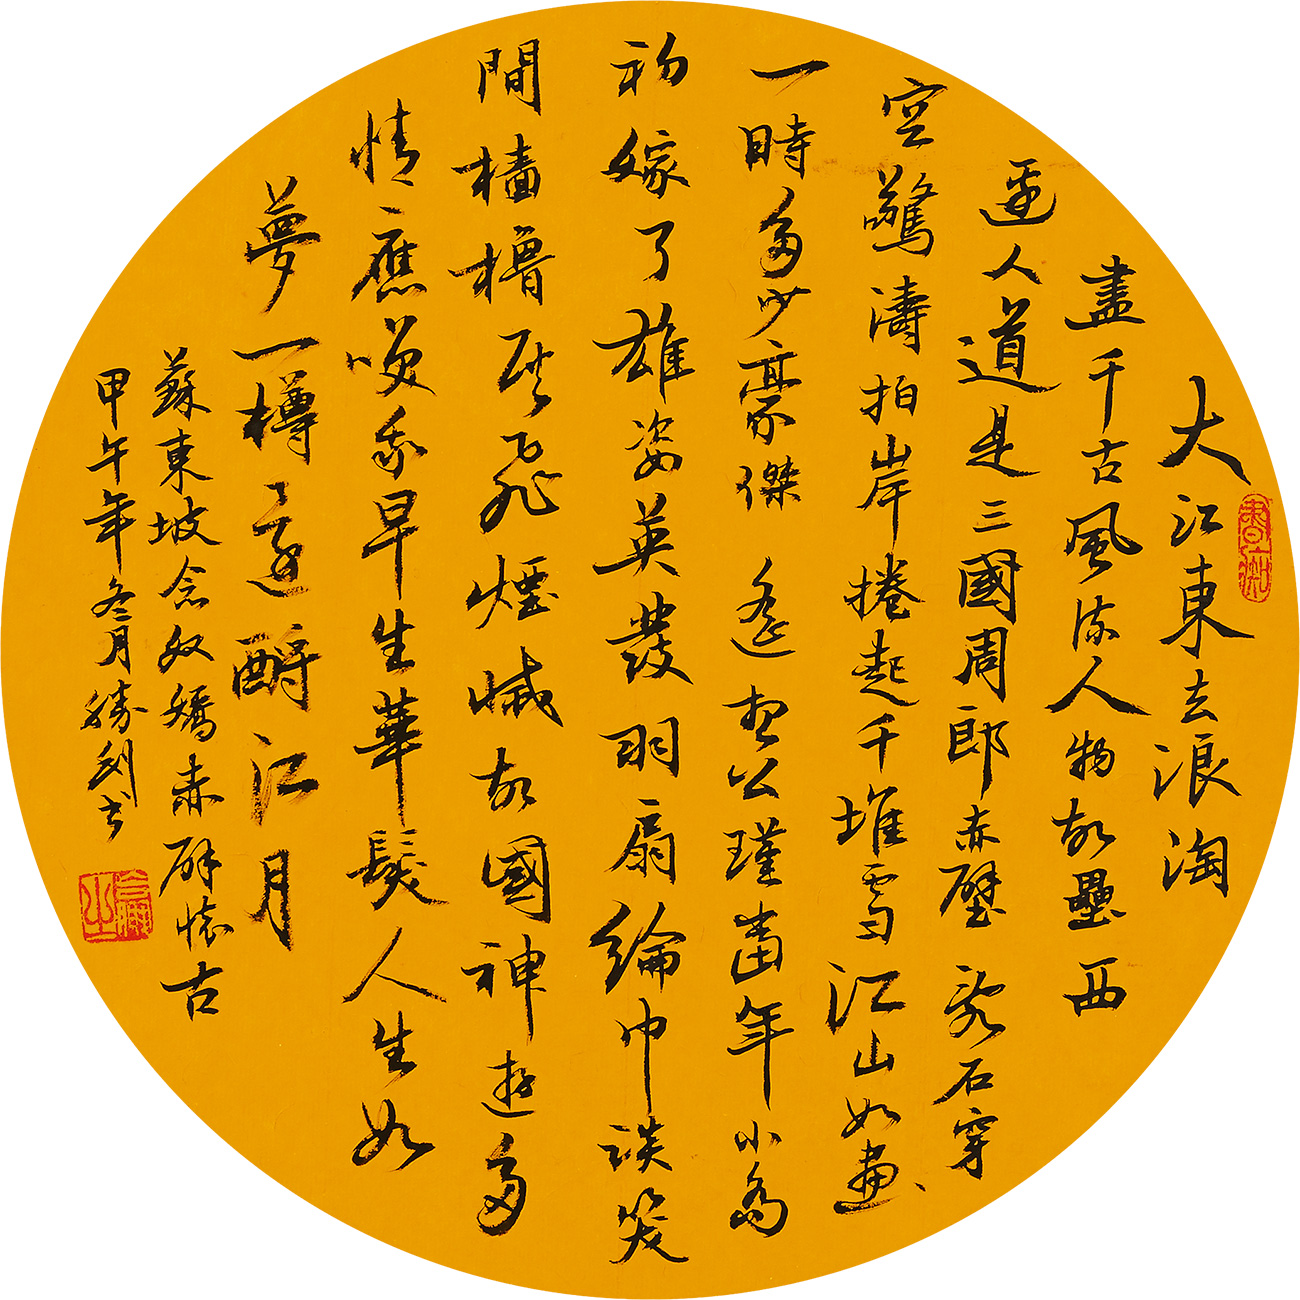 大江東去浪淘
盡千古風流人物故壘西
邊人道是三國周郎赤壁亂石穿
空驚濤拍岸捲起千堆雪江山如畫
一時多少豪傑遙想公瑾當年小喬
初嫁了雄姿英發羽扇綸巾談笑
間檣櫓灰飛煙滅故國神遊多
情應笑我早生華髮人生如
夢一樽還酹江月
蘇東坡念奴嬌赤壁懷古
甲午年冬月勝利書